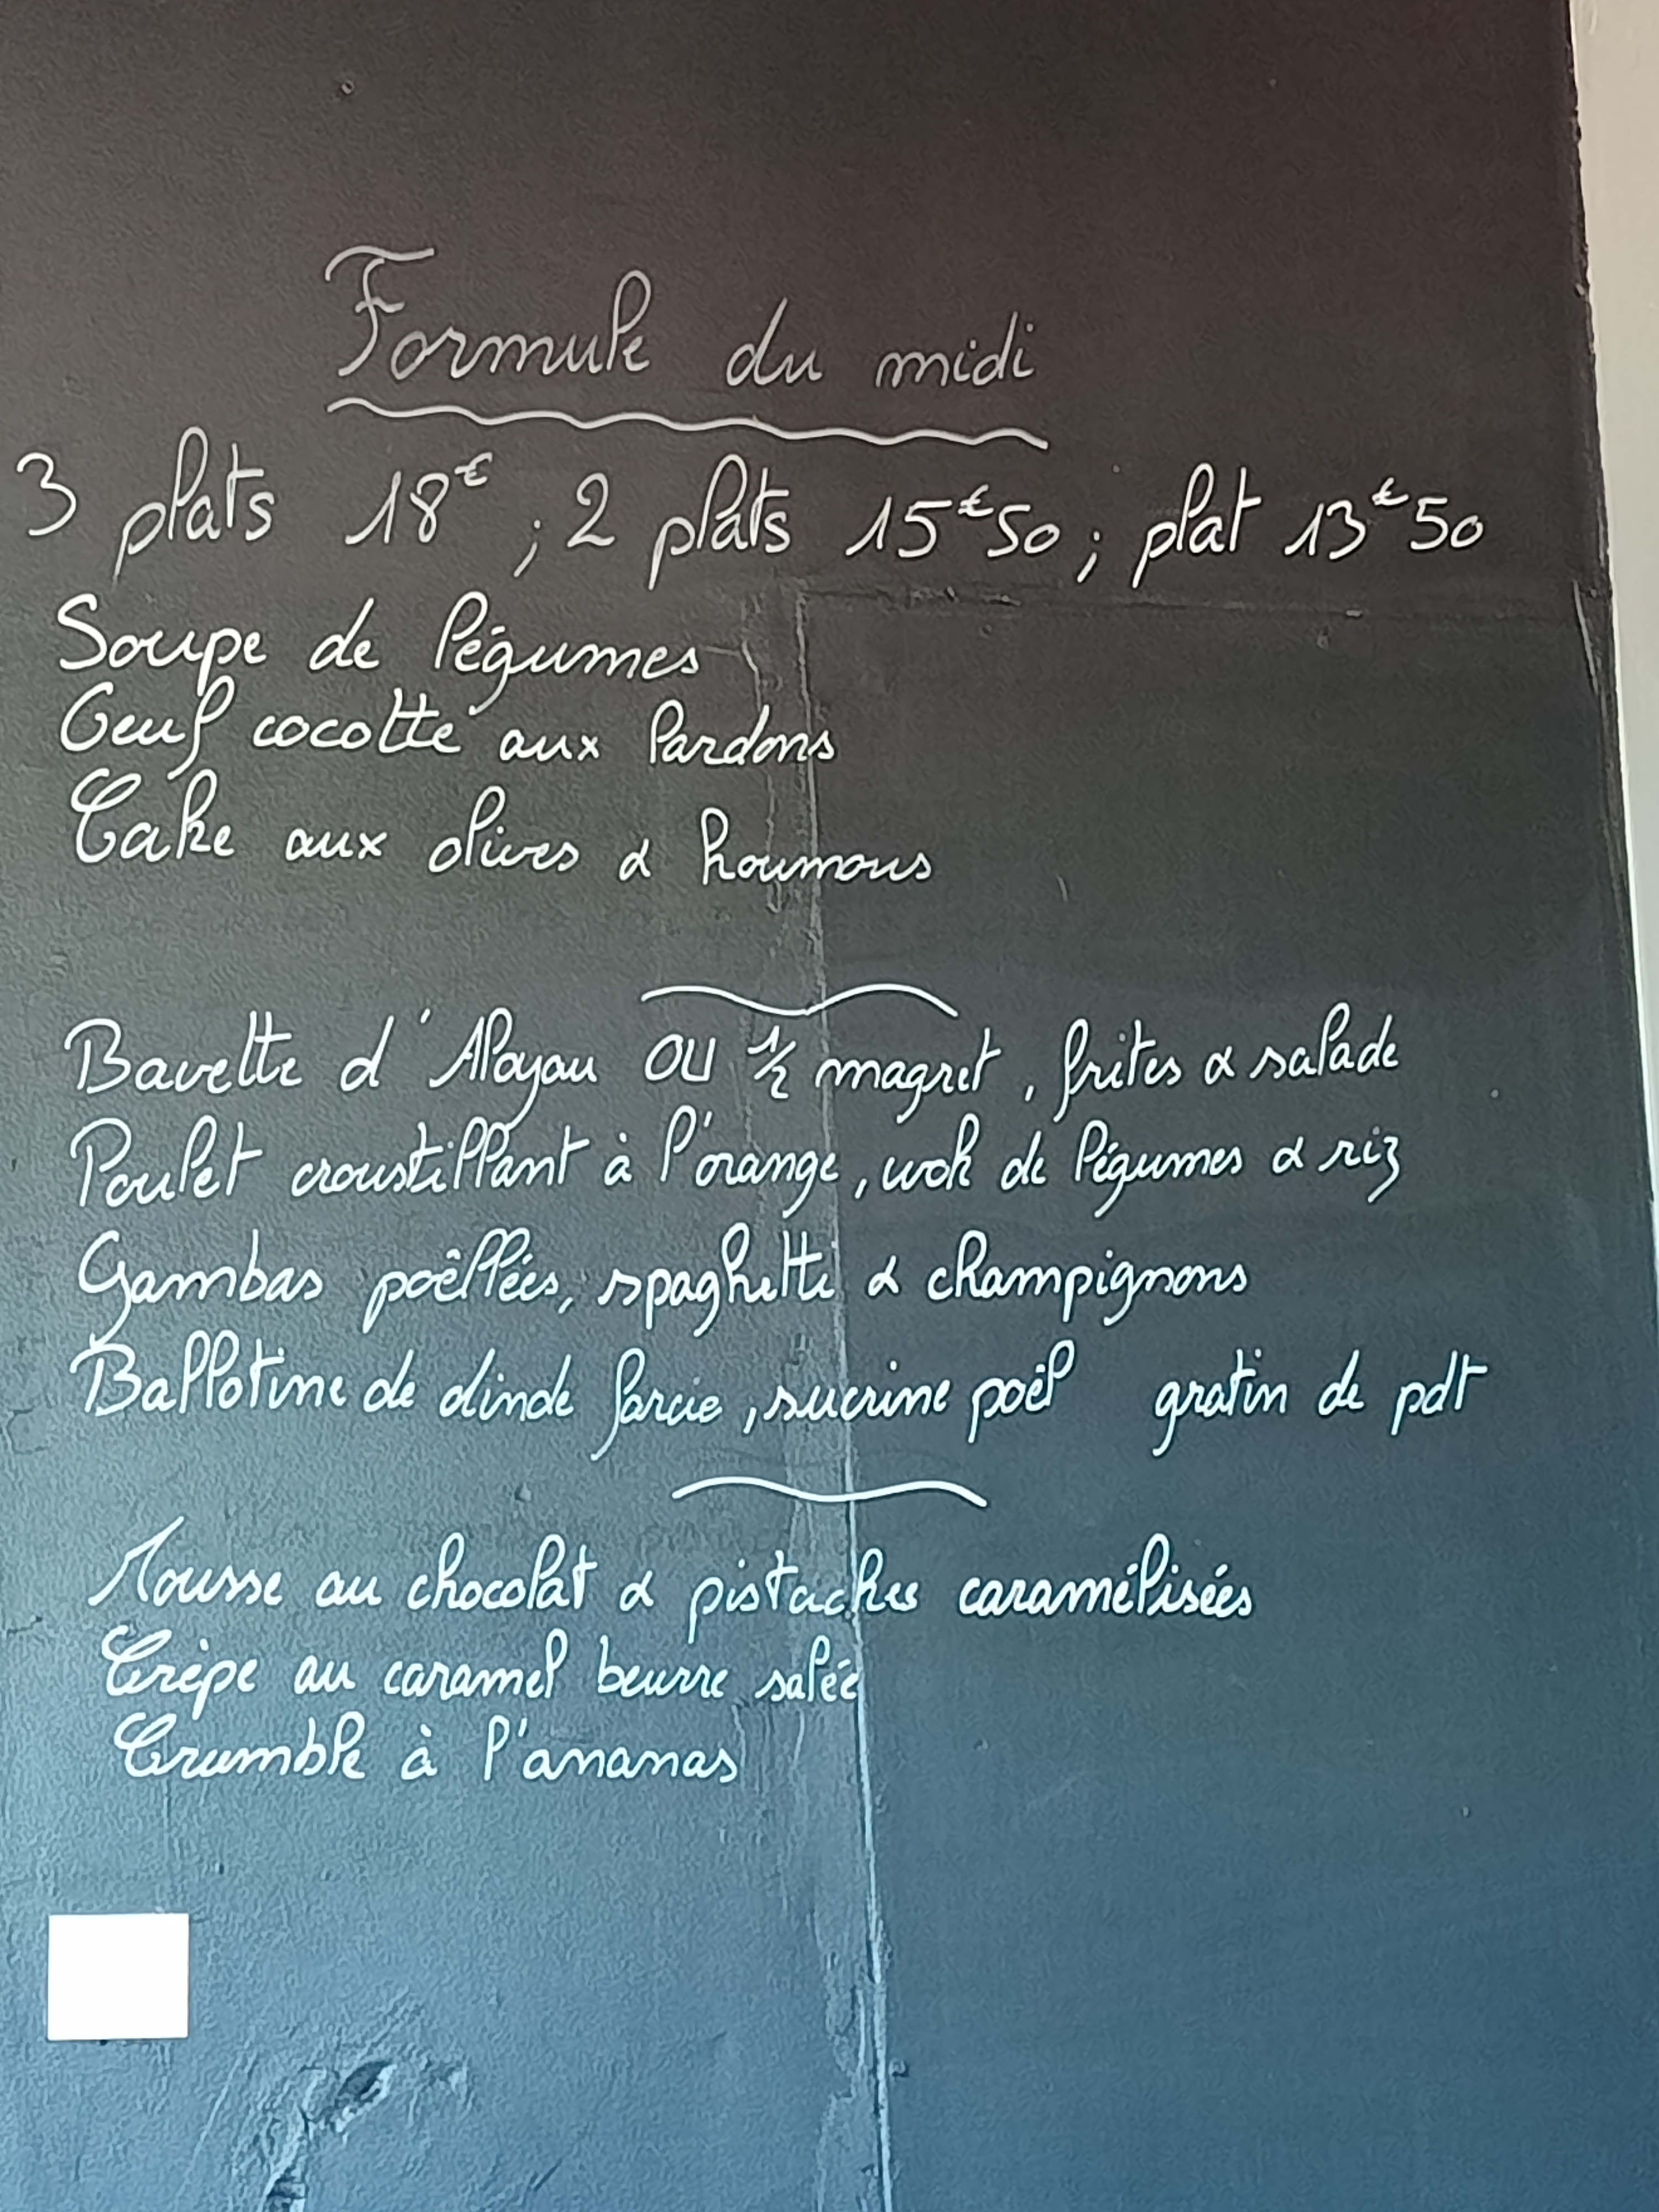 Formule du midi
3 plats 18€ ; 2 plats 15€50 ; plat 13€50
Soupe de légumes
Oeuf cocotte aux lardons
Cake aux olives & houmous
Bavette d'Aloyau OU 1/2 magret, frites & salade
Poulet croustillant à l'orange, wok de légumes & riz
Gambas poêllées, spaghetti & champignons
Ballotine de dinde farcie, sucrine poêl gratin de pdt
Mousse au chocolat & pistaches caramélisées
Crêpe au caramel beurre salée
Crumble à l'ananas